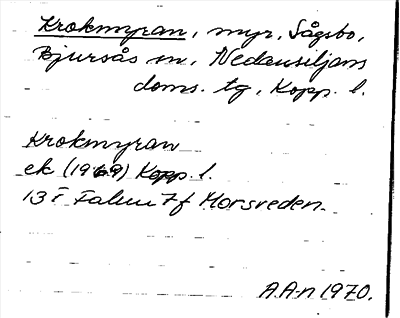 Krokmyran, myr, Sågsbo,
Bjursås sn, Nedansiljans
doms. tg, Kopp. l.
Krokmyran
ek (1969) Kopp. l.
13 F Falun 7f Morsveden
A.A-n 1970.